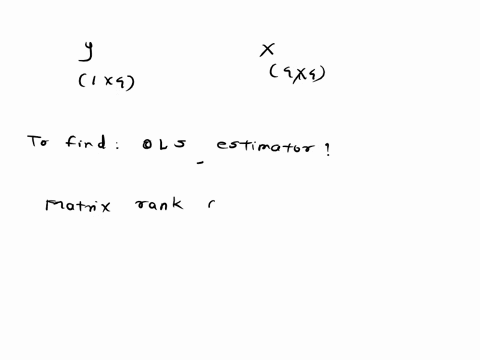 y x
(1 x 9) (9 x 9)
To find: OLS estimator !
Matrix rank (